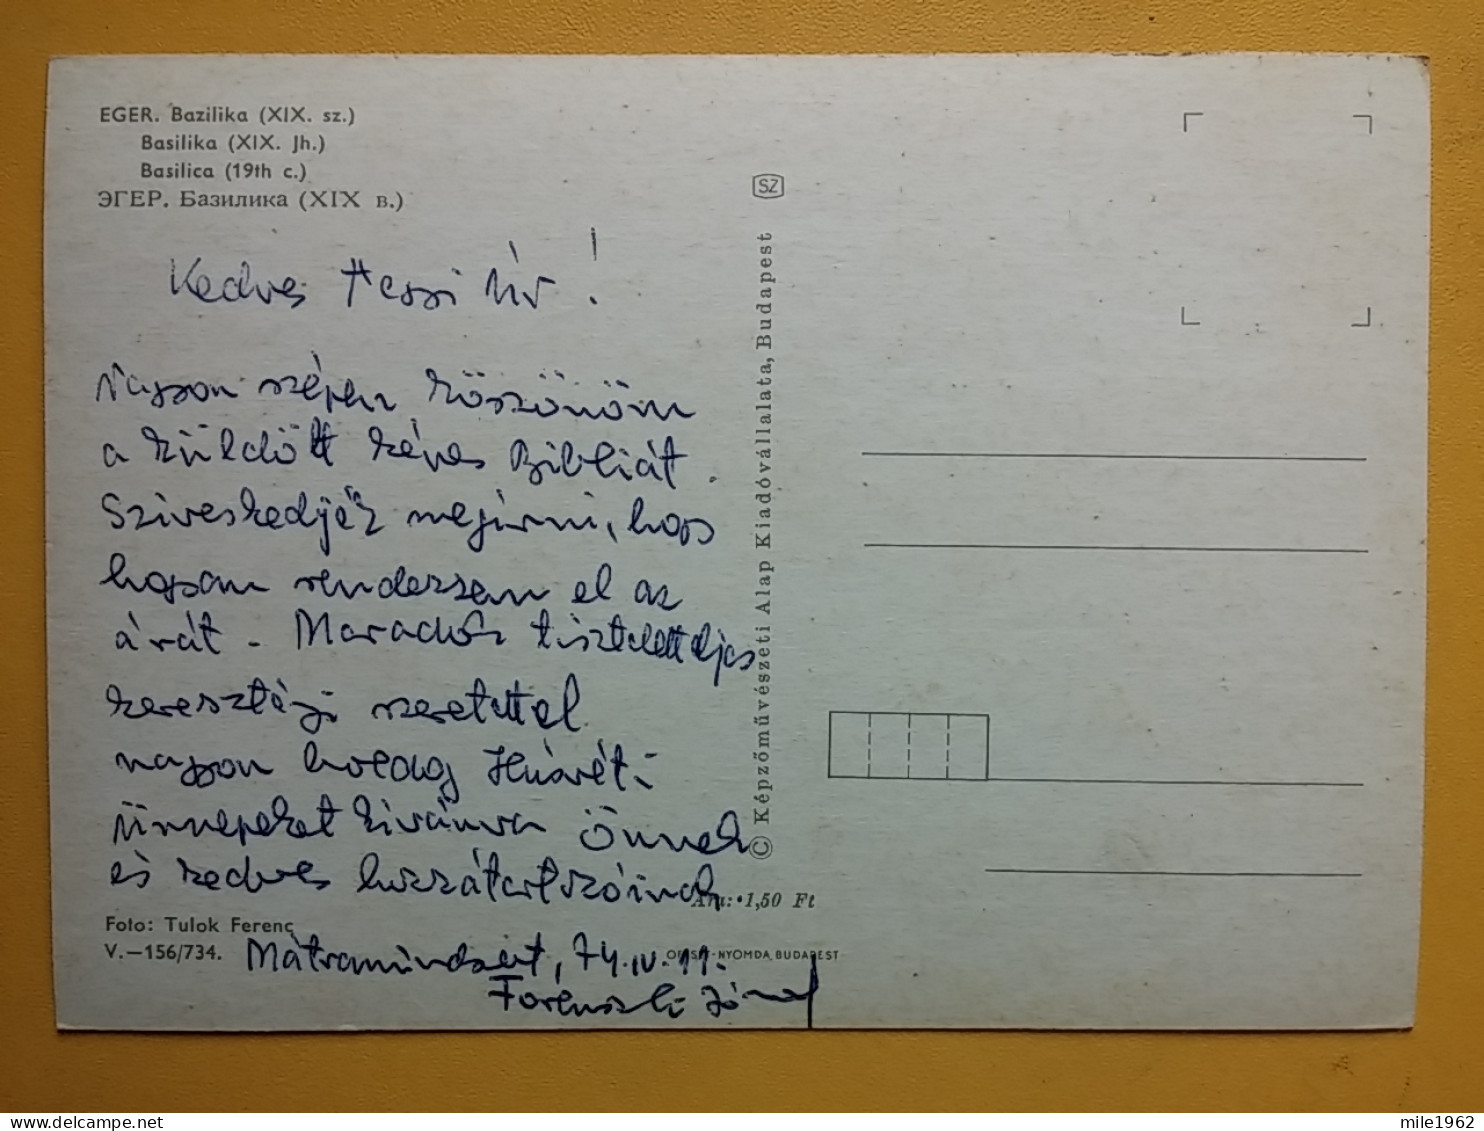 EGER. Bazilika (XIX. sz.)
Basilika (XIX. Jh.)
Basilica (19th c.)
ЭГЕР. Базилика (XIX в.)
Kedves Úr!
Nagyon szépen köszönöm
a küldött képes Bibliát.
Sziveskedjék megirni, hogy
hogyan rendezzem el az
árát. Maradok tiszteletteljes
keresztényi szeretettel
nagyon boldog Húsvéti
Ünnepeket kivánva Önnek
és kedves hozzátartozóinak
Ára: 1,50 Ft
Foto: Tulok Ferenc
V.—156/734.
OFFSET-NYOMDA, BUDAPEST
Mátramindszent, 74.IV.11.
SZ
© Képzőművészeti Alap Kiadóvállalata, Budapest
mile1962